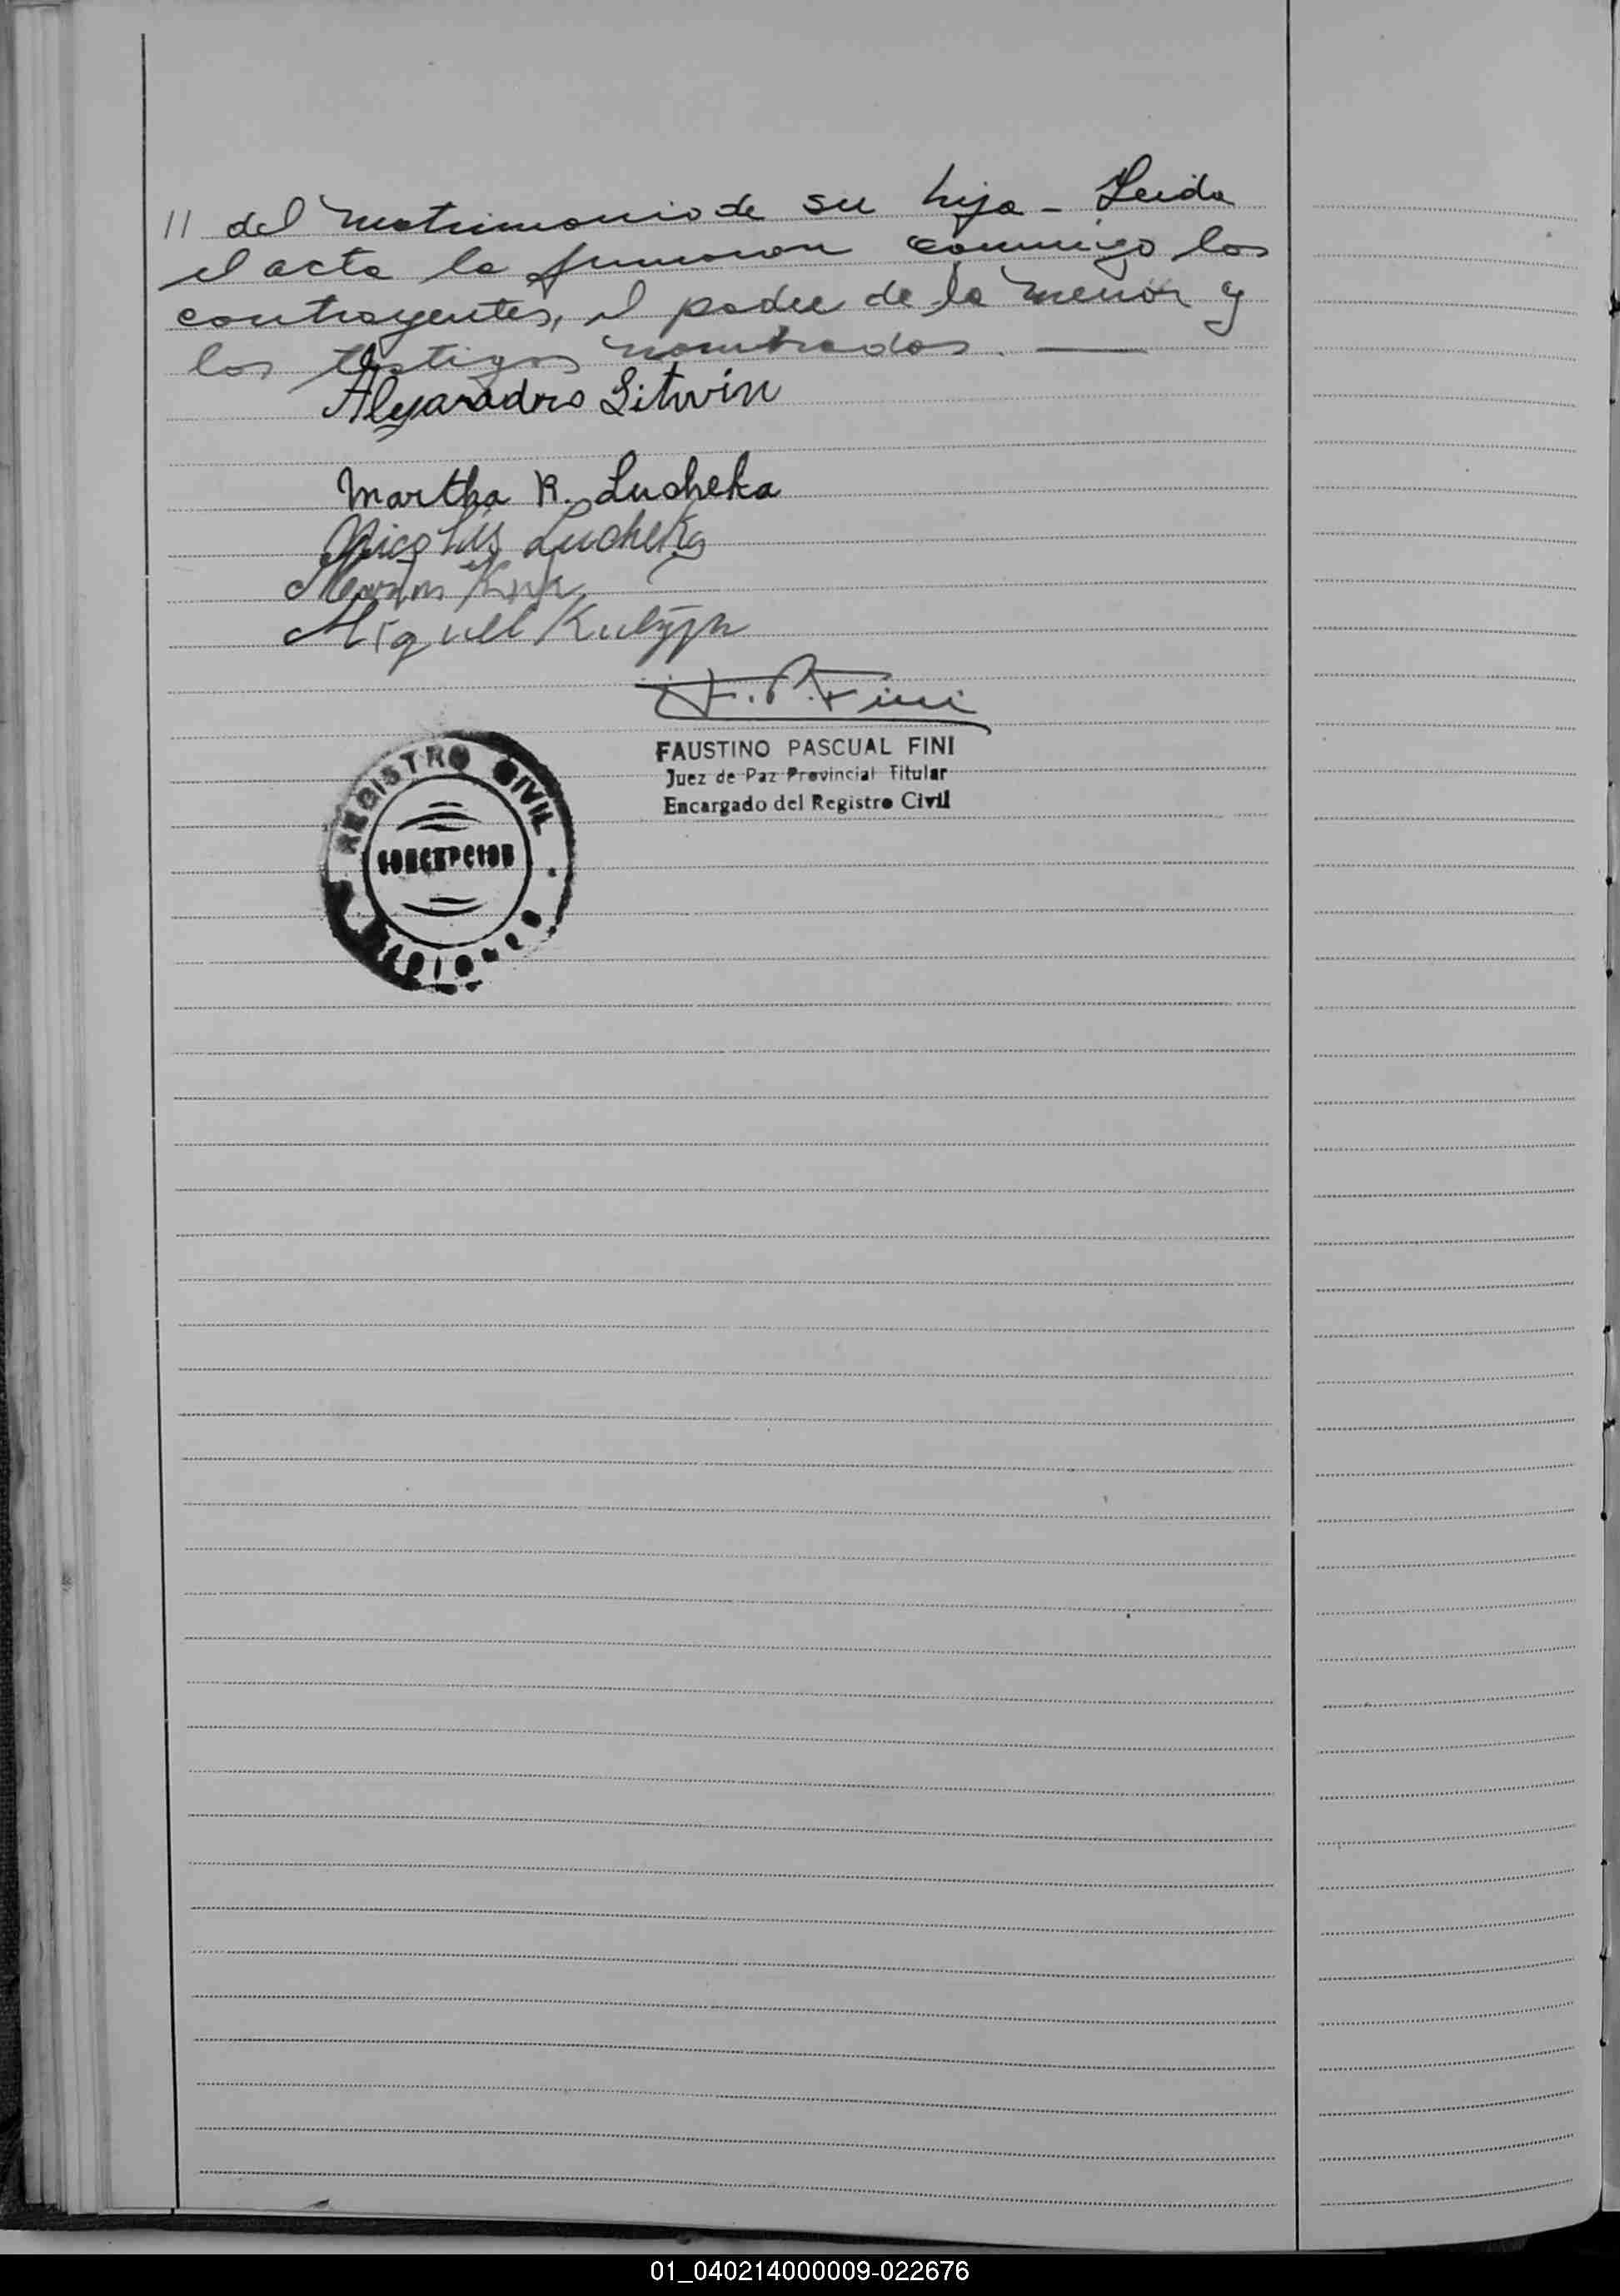 // del matrimonio de su hija - Leida
el acta la firmaron conmigo los
contrayentes, el padre de la menor y
los testigos nombrados. —
Alejaradro Litwin
Martha R. Lucheka
Nicolás Lucheka
Miguel
F. P. Fini
FAUSTINO PASCUAL FINI
Juez de Paz Provincial Titular
Encargado del Registro Civil
REGISTRO CIVIL
CONCEPCION
MISIONES
01_040214000009-022676